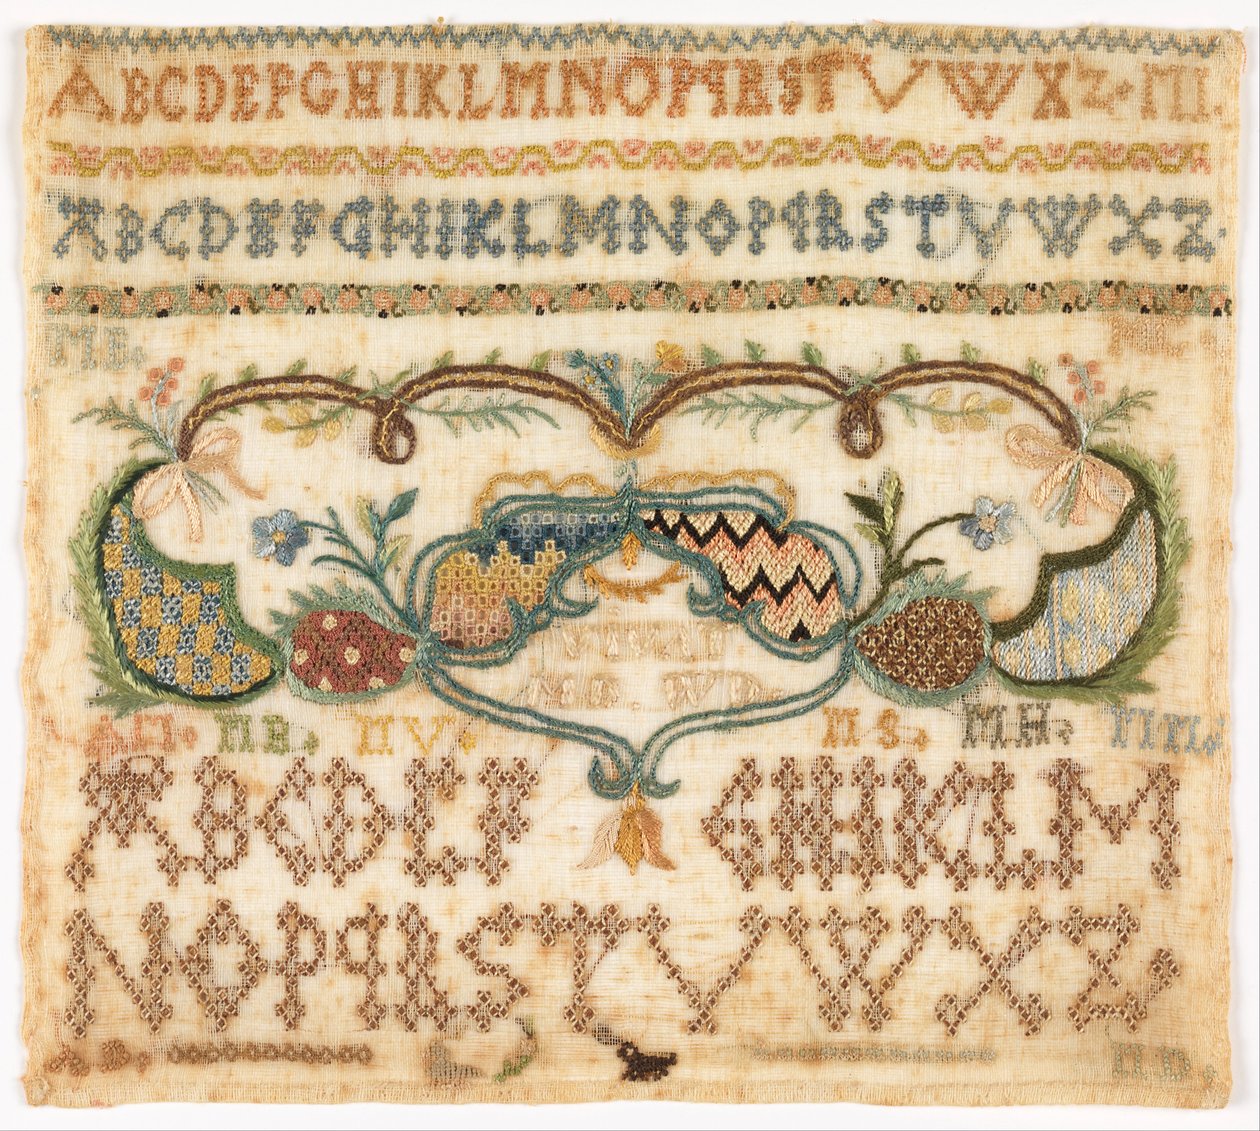 ABCDEFGHIKLMNOPqRSTVWXZ. MI.
ABCDEFGHIKLMNOPqRSTVWXZ.
MB.
MB. MB. MV. MS. MH. MM.
ABCDEF GHIKLM
NOPqRSTVWXZ.
AB. MD.